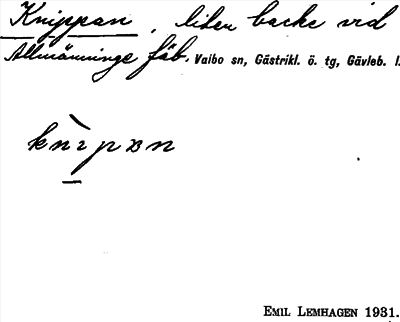 Knippan, liten backe vid
Allmänninge fäb. Valbo sn, Gästrikl. ö. tg, Gävleb. l.
EMIL LEMHAGEN 1931.